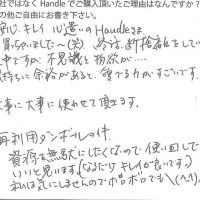 社ではなく Handle でご購入頂いたご理由はなんですか？
の他ご自由にお書き下さい。
心、キレイ 心遣いのHandleさま
買ちゃいました〜(笑) 今、断捨離をしてい
中ですが不思議と物欲が…
気持ちに余裕があると、観る力がすごいです。
大事に大事に使わせて頂きます。
再利用ダンボールの件
資源を無駄にしたくないので使い回しで
いいと思います。(なるだけキレイが良いです。)
私は気にしませんのでボロボロでも\(^^)